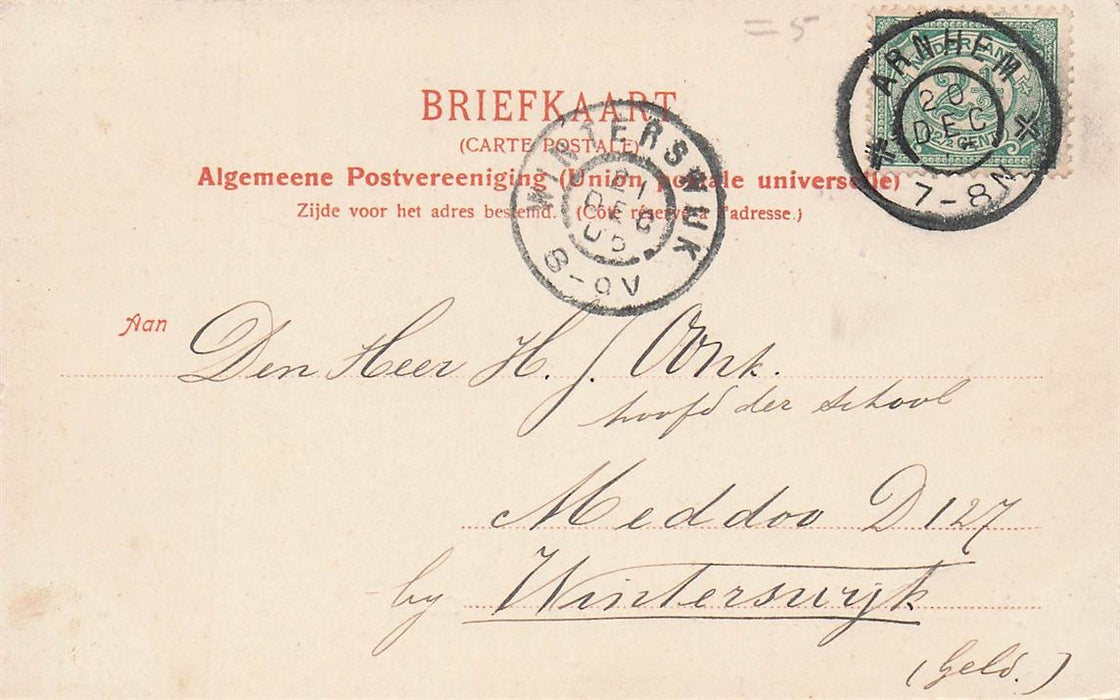 = 5
NEDERLAND
2½
2½ CENT
ARNHEM
20
DEC
7-8N
BRIEFKAART
(CARTE POSTALE)
Algemeene Postvereeniging (Union postale universelle)
Zijde voor het adres bestemd. (Côté réservé à l'adresse.)
WINTERSWIJK
21
DEC
05
8-9V
Aan
Den Heer H. J. Oonk.
hoofd der school
Meddoo D 127
by Winterswyk
(Geld.)